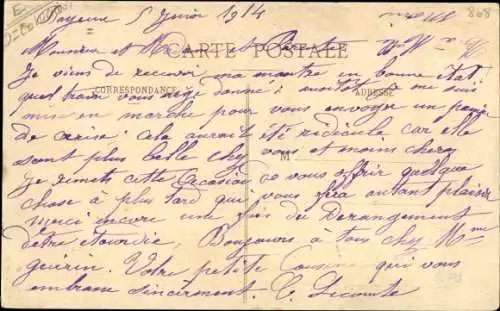 Mayenne 5 Janvier 1914
808
Monsieur et M
CARTE POSTALE
CORRESPONDANCE
ADRESSE
M
Je viens de recevoir ma montre en bonne état
quel train vous ai-je donné ; aussitôt je me suis
mise en marche pour vous envoyer un panier
de cerise : cela aurait été ridicule car elle
sont plus belle chez vous et moins cher
Je remets cette occasion de vous offrir quelque
chose à plus tard qui vous fera autant plaisir
Merci encore une fois du Dérangement
d'être étourdie, Bonjours à tous chez Mme
Guérin. Votre petite Cousine qui vous
embrasse sincèrement. C. Lecomte